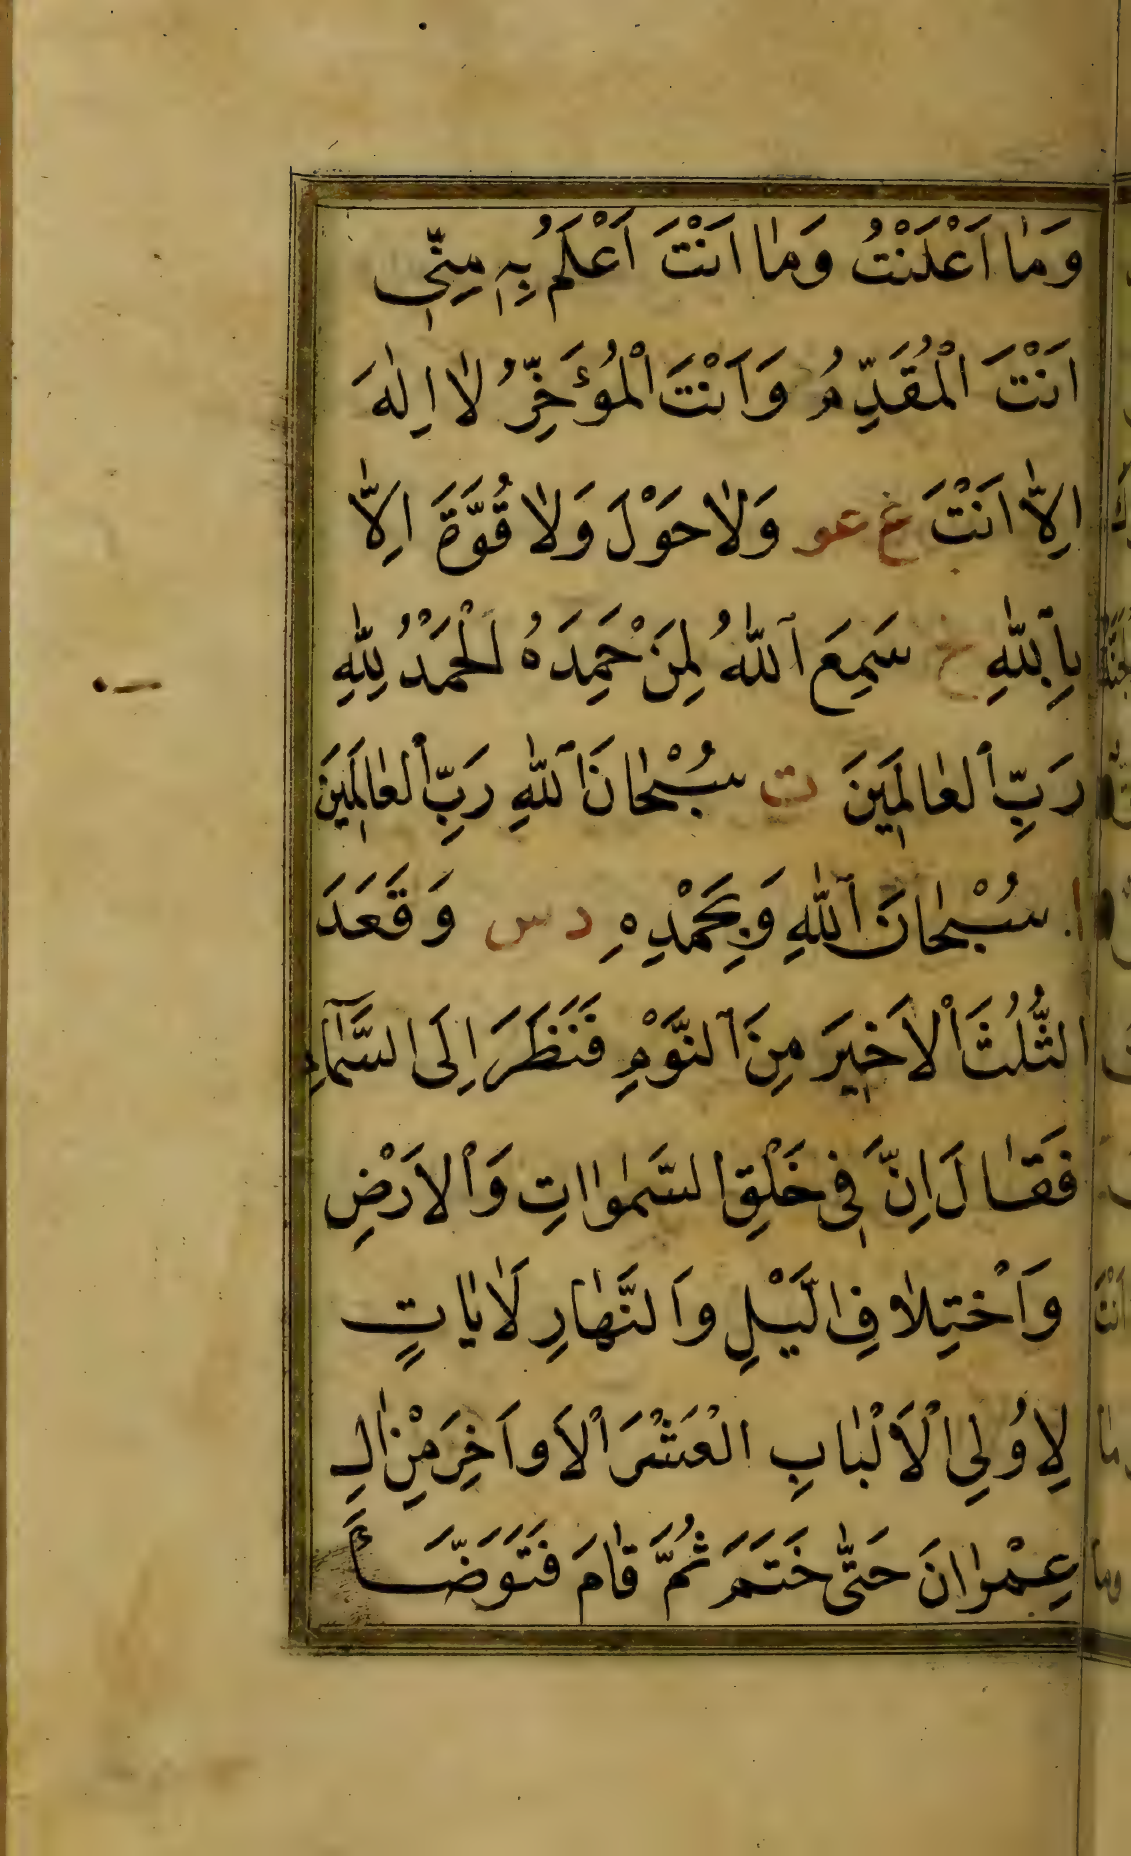 وَمَا اَعْلَنْتُ وَمَا اَنْتَ اَعْلَمُ بِهِ مِنّى
اَنْتَ الْمُقَدِّمُ وَاَنْتَ الْمُؤَخِّرُ لَا اِلٰهَ
اِلَّا اَنْتَ ع عو وَلَا حَوْلَ وَلَا قُوَّةَ اِلَّا
بِاللّٰهِ خ سَمِعَ اللّٰهُ لِمَنْ حَمِدَهُ اَلْحَمْدُ لِلّٰهِ
رَبِّ الْعَالَمِينَ ت سُبْحَانَ اللّٰهِ رَبِّ الْعَالَمِينَ
سُبْحَانَ اللّٰهِ وَبِحَمْدِهِ د س وَقَعَدَ
الثُّلُثَ الْاَخِيرَ مِنَ النَّوْمِ فَنَظَرَ اِلَى السَّمَآءِ
فَقَالَ اِنَّ فِى خَلْقِ السَّمٰوَاتِ وَالْاَرْضِ
وَاخْتِلَافِ الَّيْلِ وَالنَّهَارِ لَاٰيَاتٍ
لِاُولِى الْاَلْبَابِ الْعَشْرَ الْاَوَاخِرَ مِنْ اٰلِ
عِمْرَانَ حَتَّى خَتَمَ ثُمَّ قَامَ فَتَوَضَّأَ